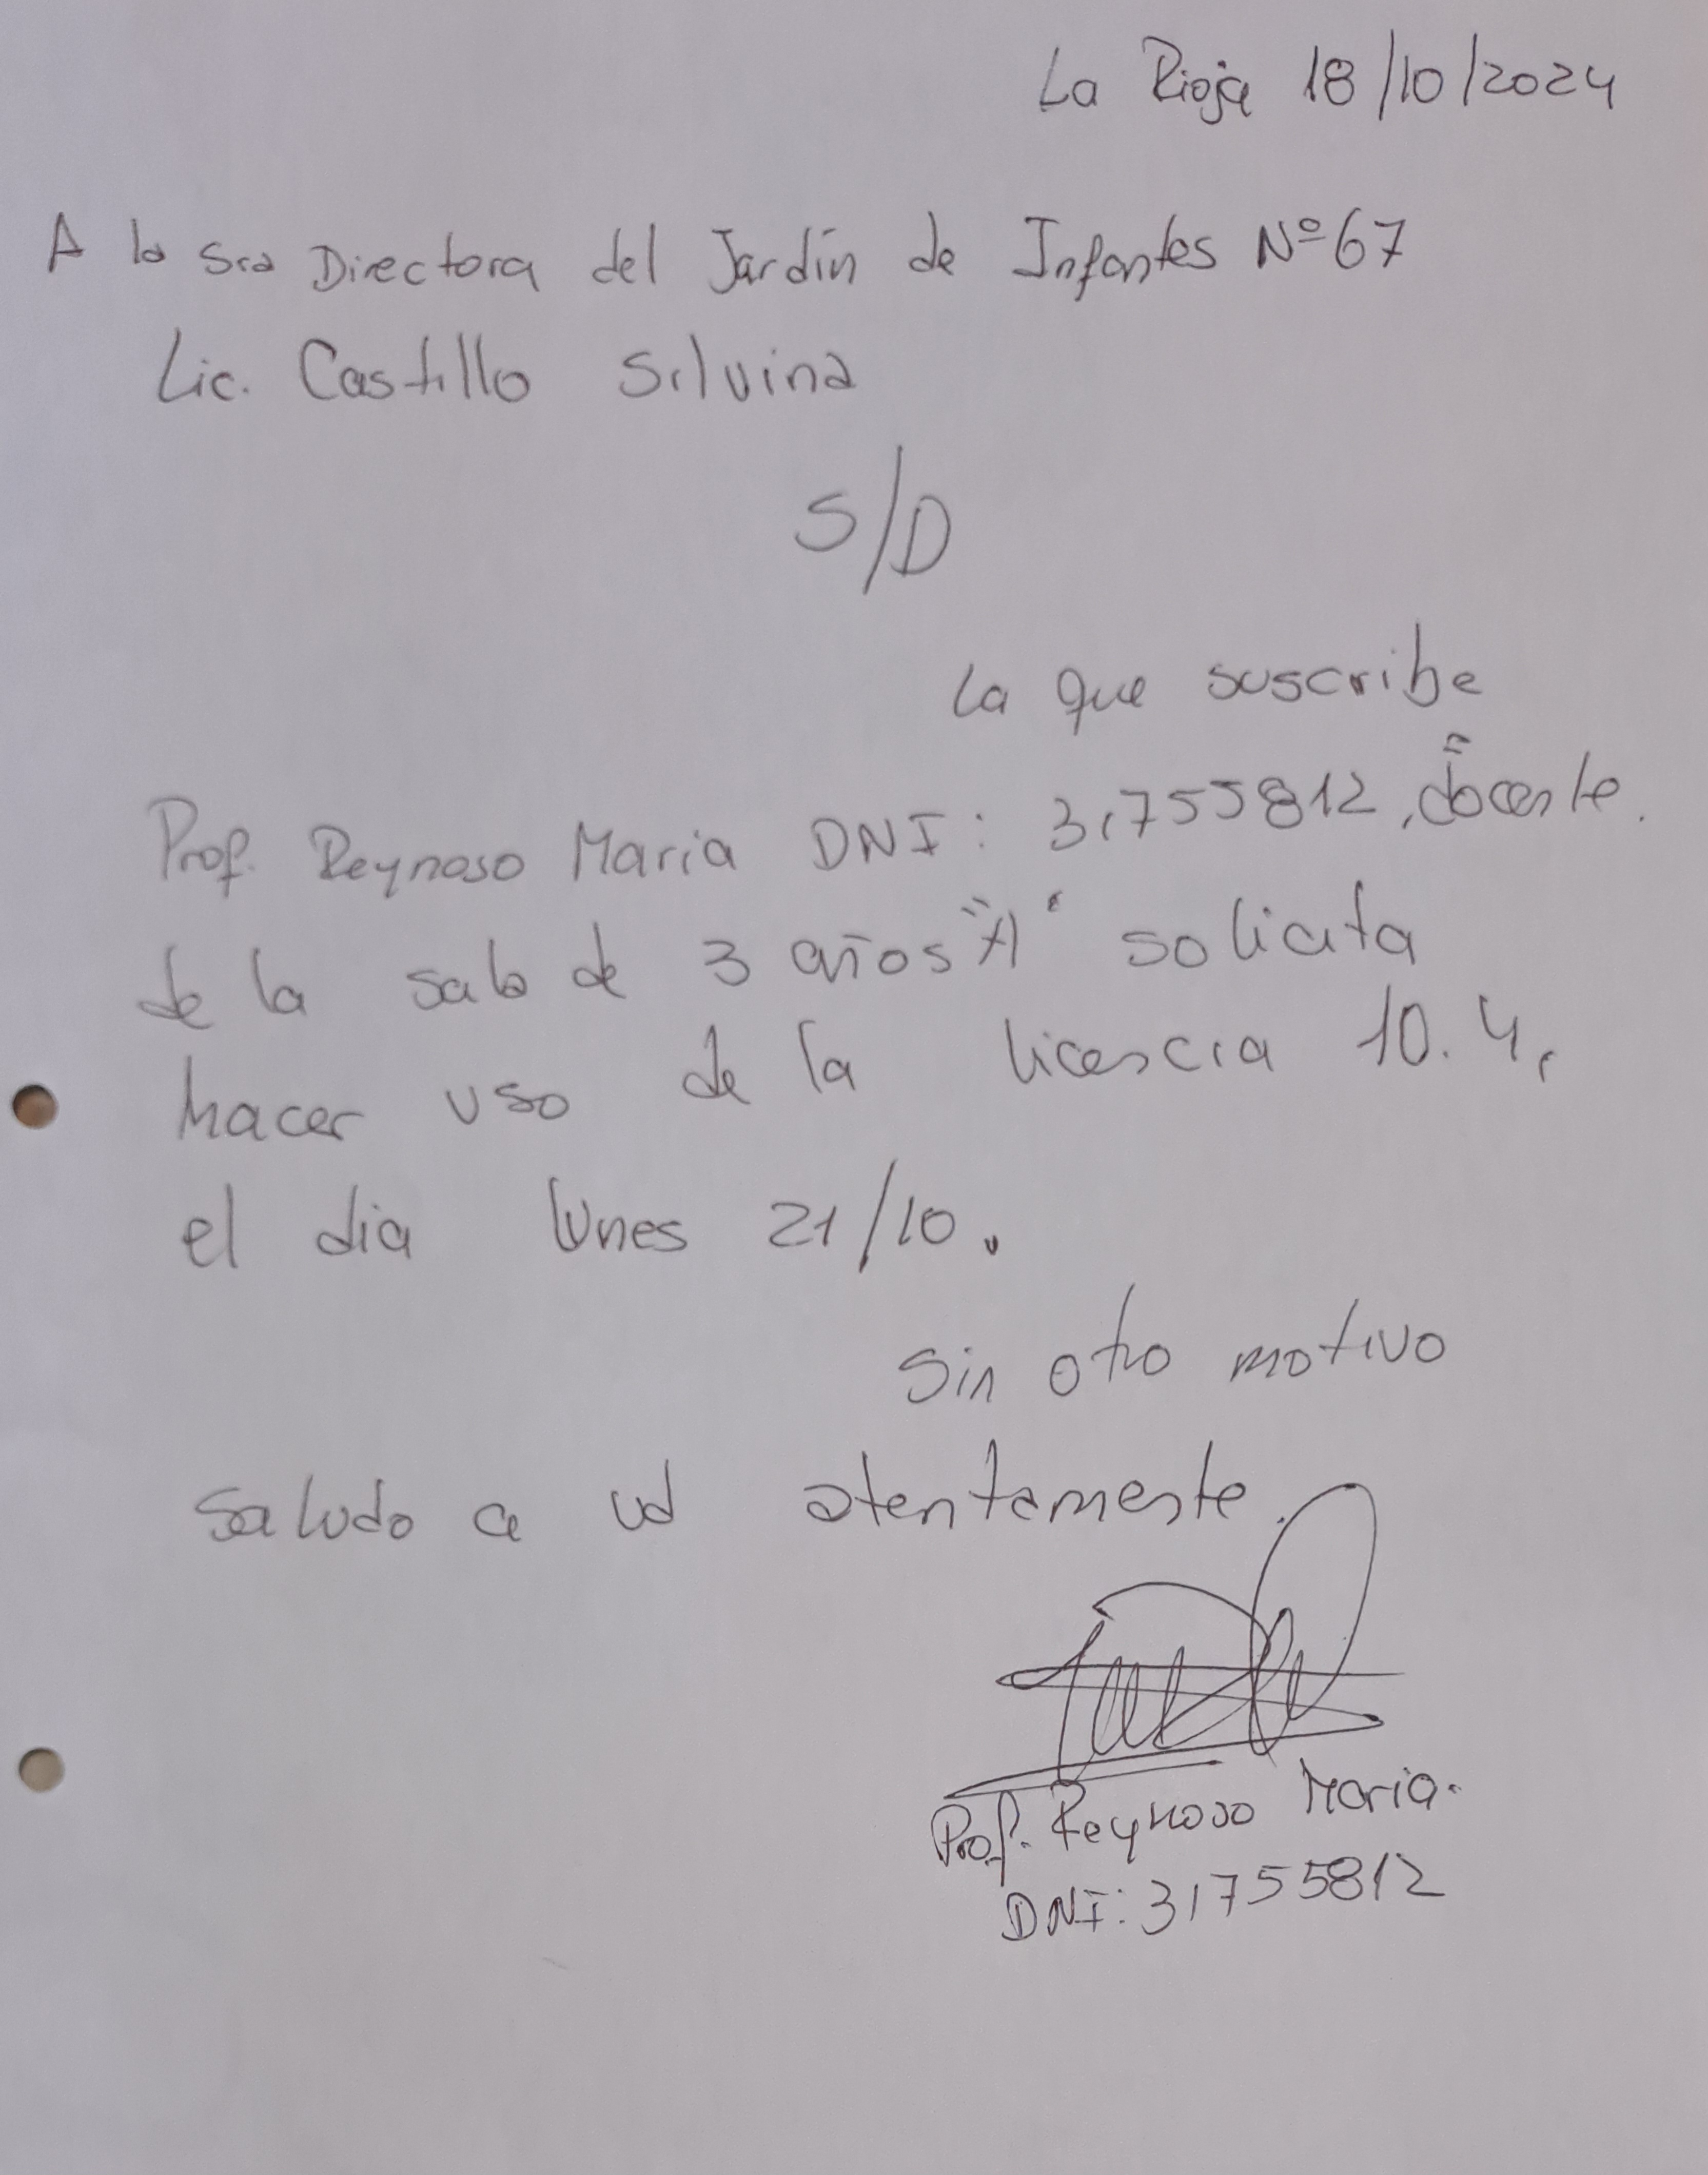 La Rioja 18/10/2024
A la Sra Directora del Jardín de Infantes Nº67
Lic. Castillo Silvina
S/D
La que suscribe
Prof. Reynoso Maria DNI: 31755812, docente.
de la sala de 3 años "A" solicita
hacer uso de la licencia 10.4,
el dia lunes 21/10.
Sin otro motivo
Saludo a ud atentamente.
Prof. Reynoso Maria.
DNI: 31755812